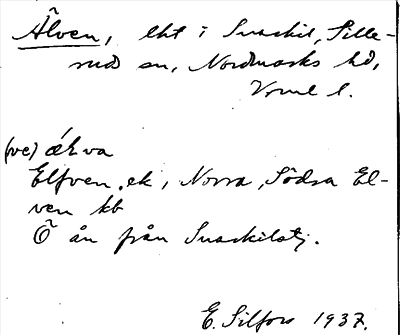 Älven, lht i Snarkil, Sille-
rud sn, Nordmarks hd,
Vrml l.
(ve) ælva
Elfven ek, Norra, Södra El-
ven kb
Ö ån från Snarkilstj.
E. Silfors 1937.